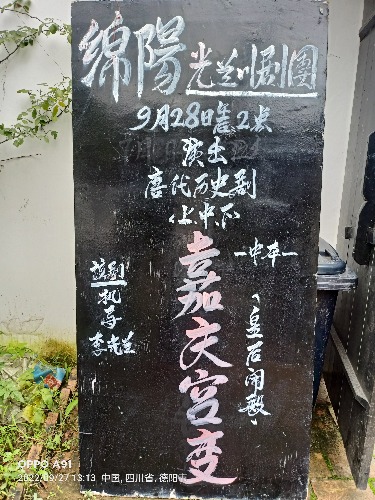 绵陽光兰川剧團
9月28日2点
演出
唐代历史剧
上中下
嘉庆宫变
—中本—
皇后闹殿
该剧
执导
李先兰
OPPO A91
2022/09/27 13:13 中国, 四川省, 德阳市